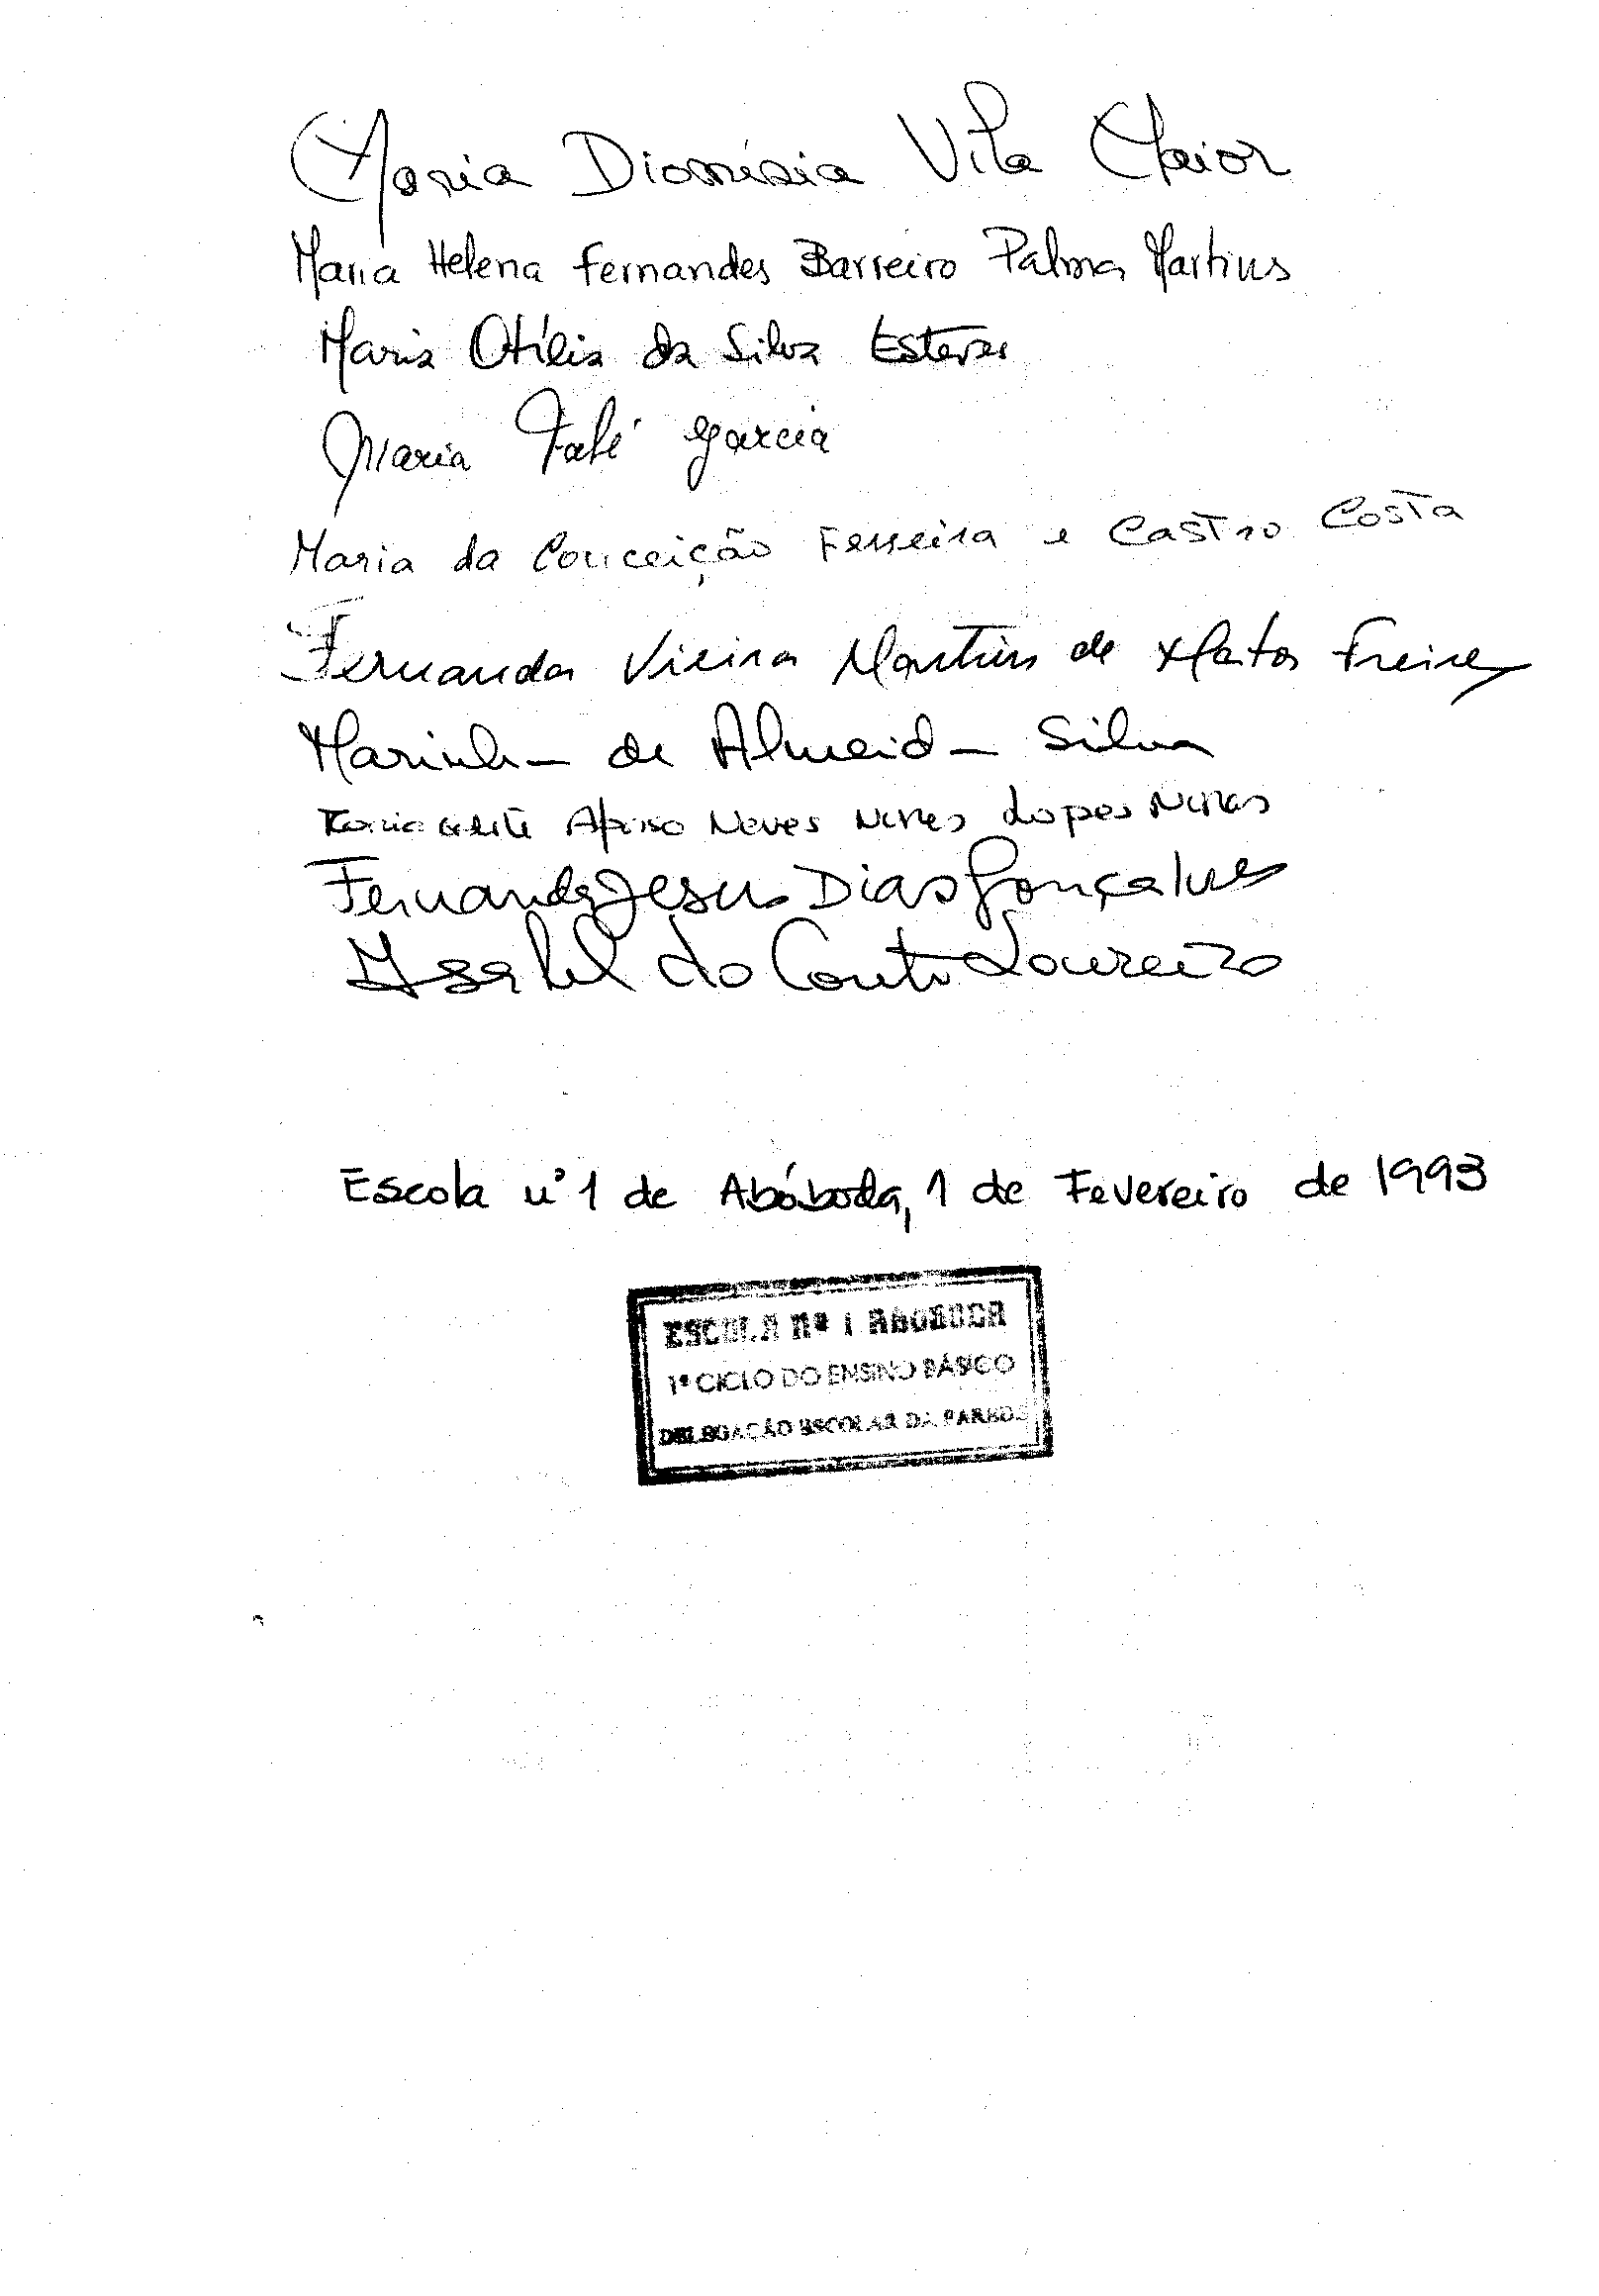 Maria Dionísia Vila Maior
Maria Helena Fernandes Barreiro Palma Martins
Maria Otília da Silva Esteves
Maria Garcia
Maria da Conceição Ferreira e Castro Costa
Fernanda Vieira Martins de Matos Freire
Marinha de Almeida Silva
Afonso Neves Nunes Lopes Nunes
Fernanda Jesus Dias Gonçalves
Isabel do Couto Loureiro
Escola nº 1 de Abóboda, 1 de Fevereiro de 1993
ESCOLA Nº 1 ABOBODA
1º CICLO DO ENSINO BÁSICO
DELEGAÇÃO ESCOLAR DA PAREDE